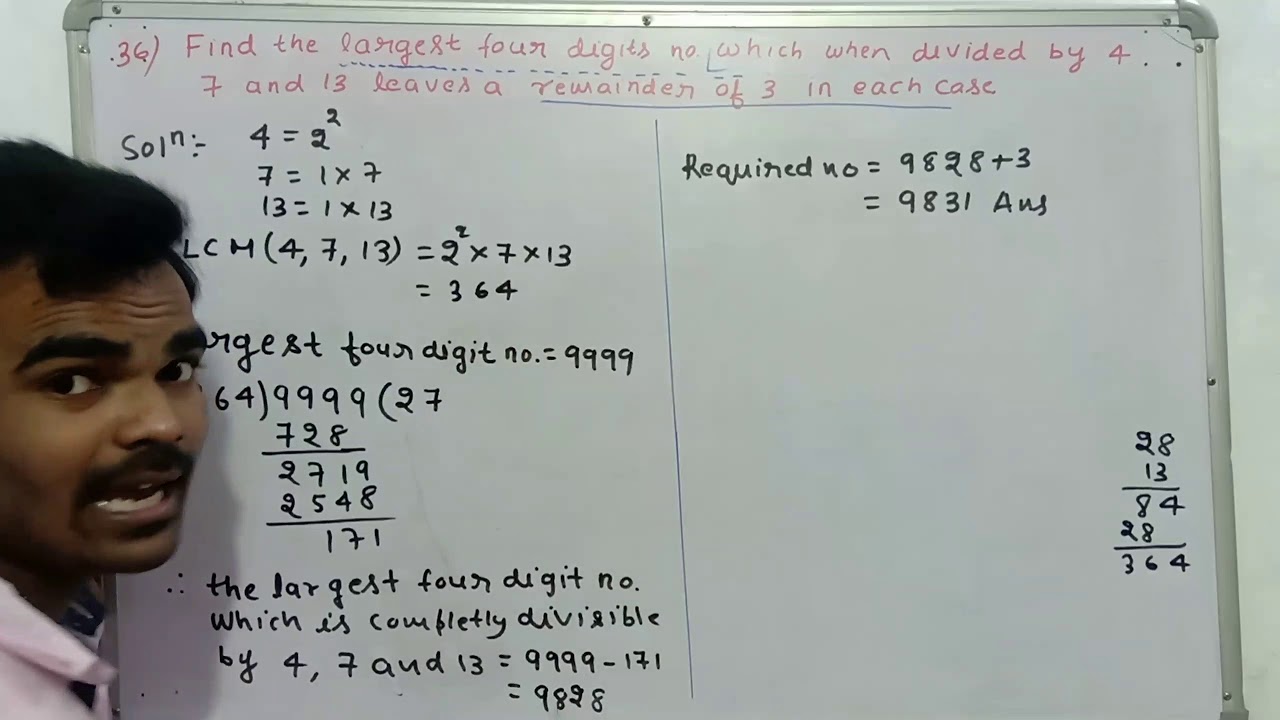 36) Find the largest four digits no. which when divided by 4.
7 and 13 leaves a remainder of 3 in each case
Solⁿ:-
4 = 2²
7 = 1 × 7
13 = 1 × 13
LCM (4, 7, 13) = 2² × 7 × 13
= 364
rgest four digit no. = 9999
64) 9999 (27
728
2719
2548
171
∴ the largest four digit no.
which is completly divisible
by 4, 7 and 13 = 9999 - 171
= 9828
Required no = 9828 + 3
= 9831 Ans
28
13
84
28
364